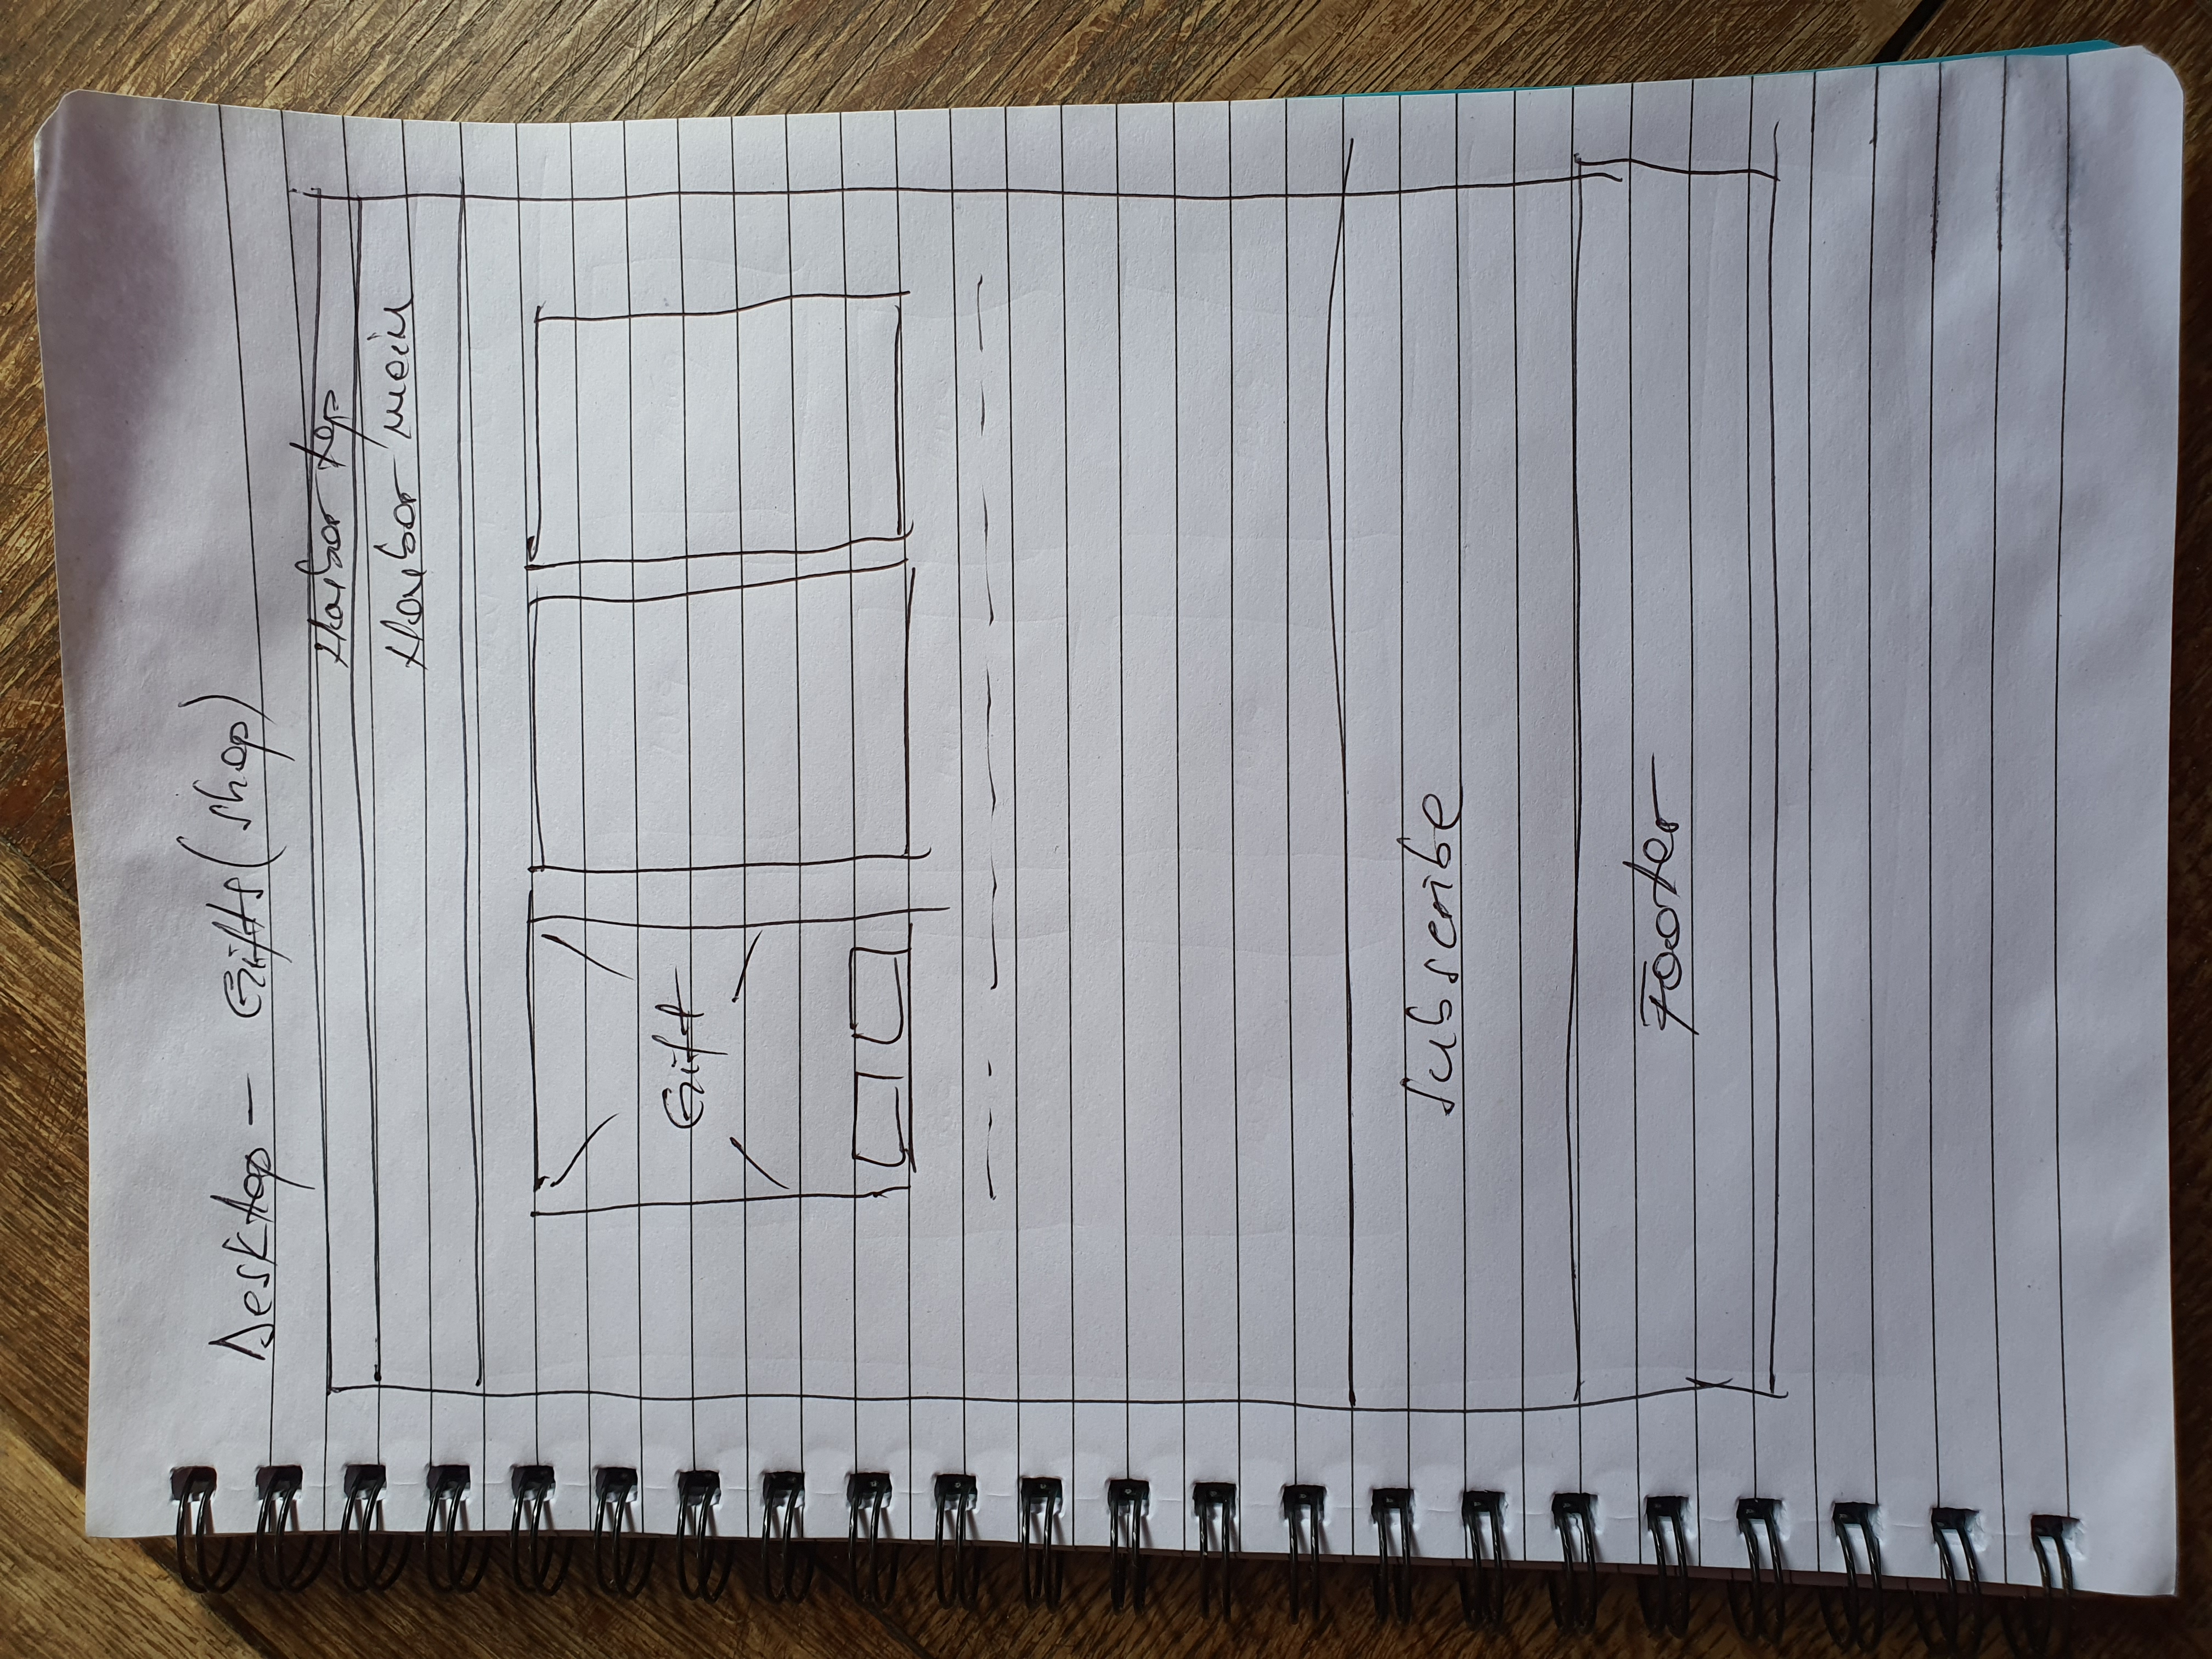 Desktop - Gifts (shop)
Navbar top
Navbar main
Gift
Subscribe
Footer